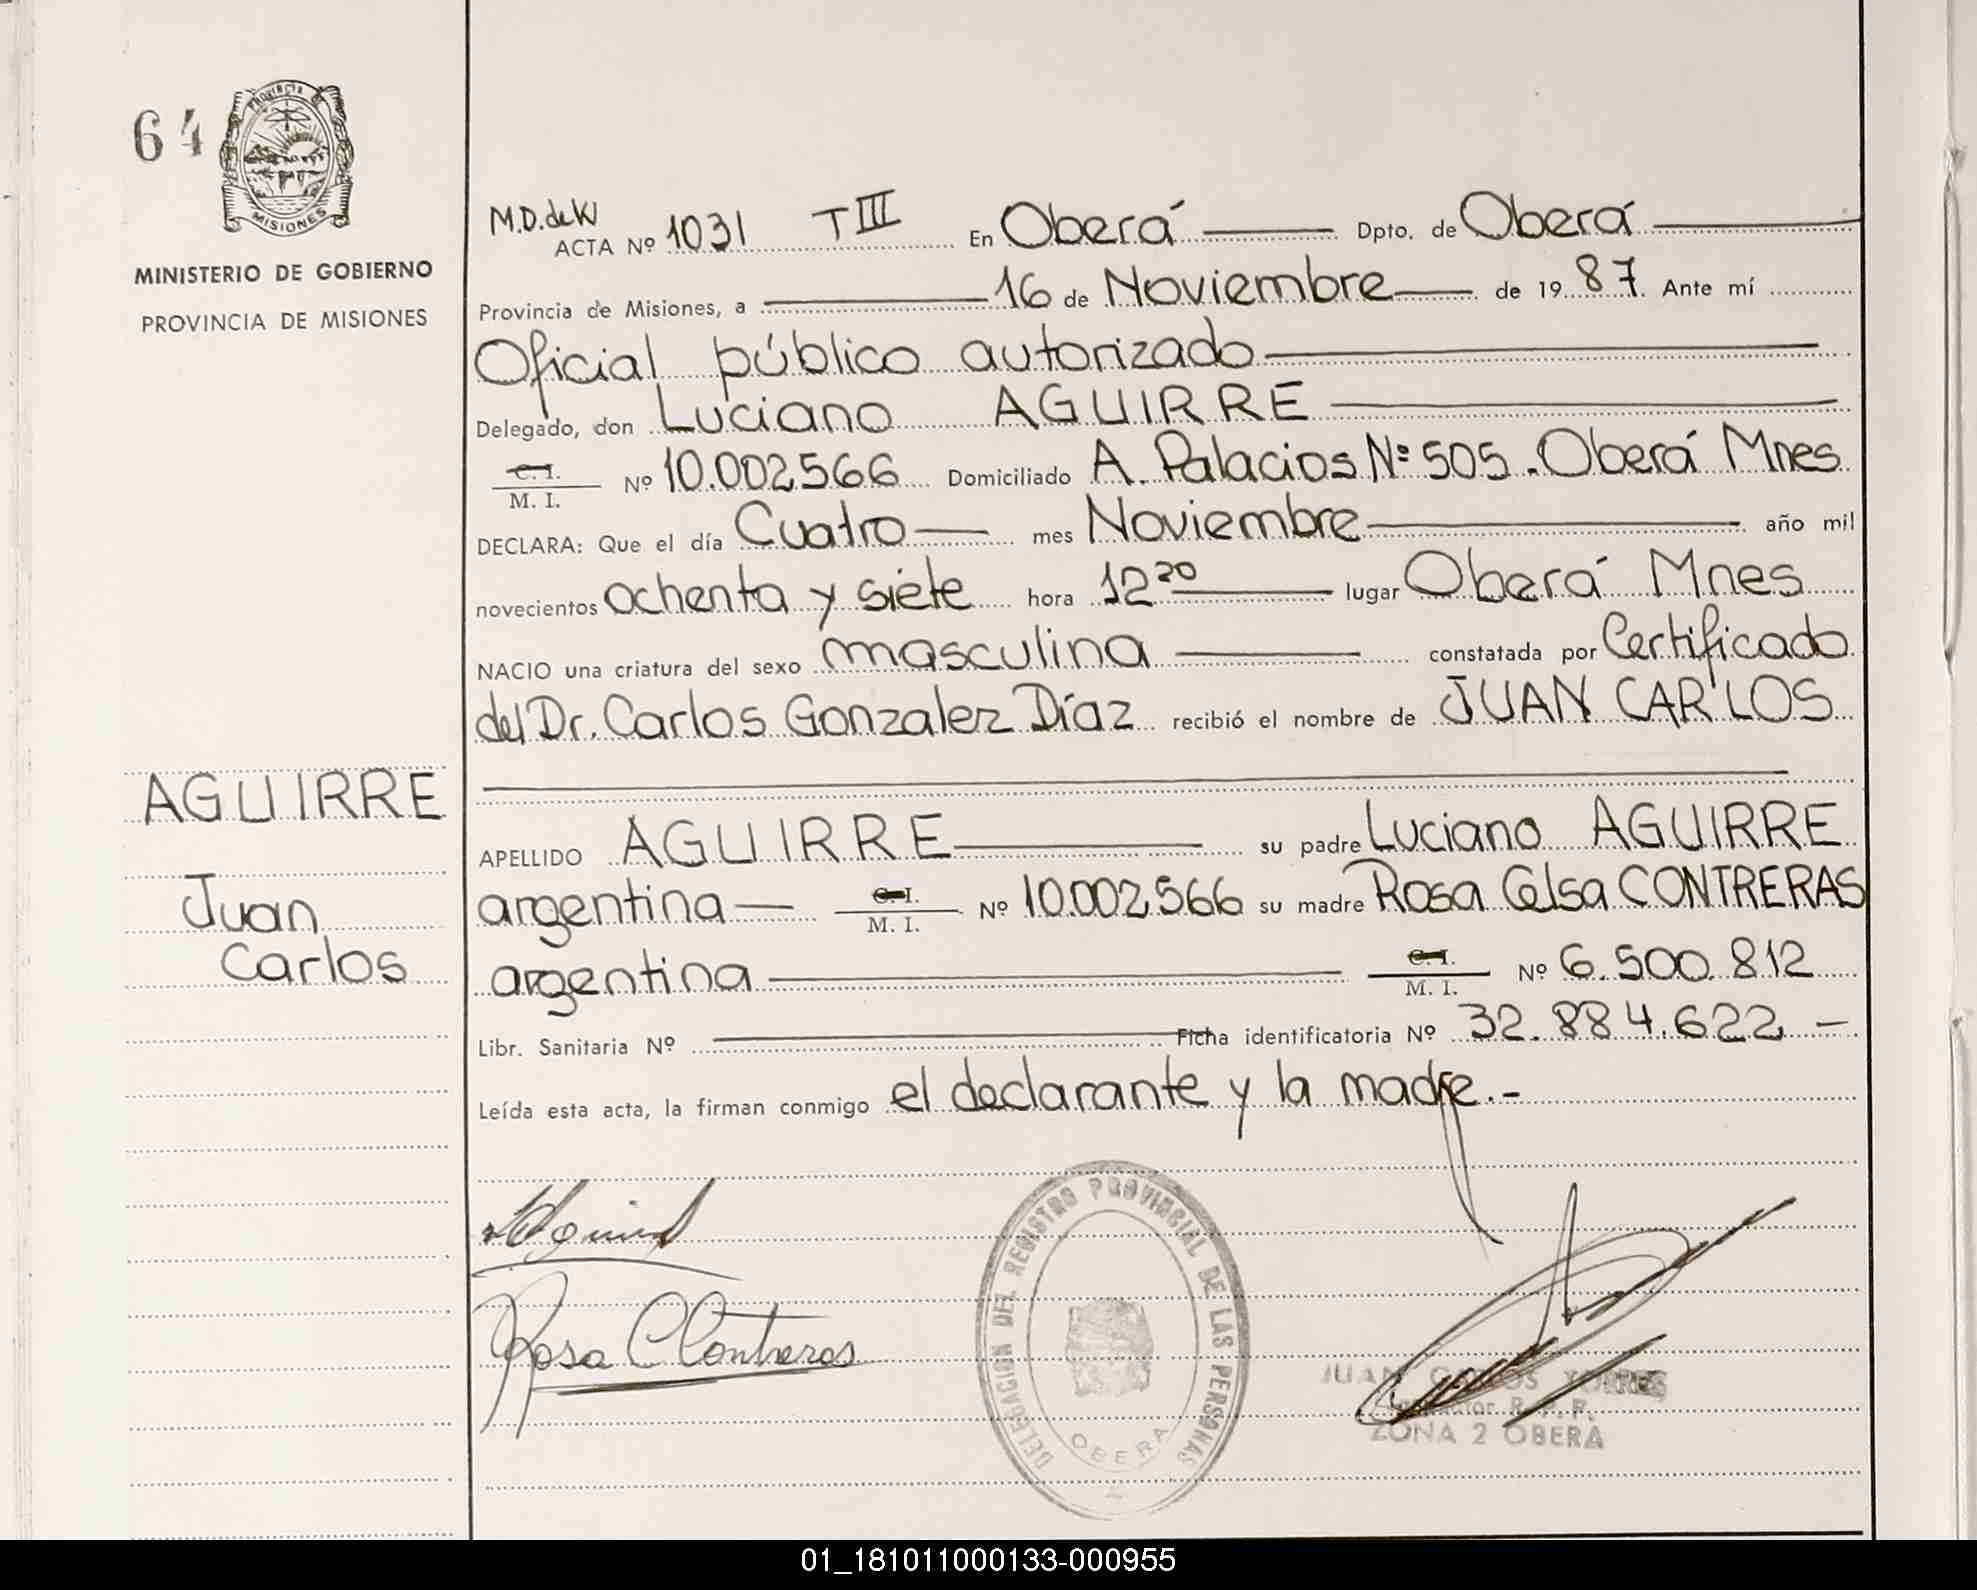 64
PROVINCIA DE
MISIONES
MINISTERIO DE GOBIERNO
PROVINCIA DE MISIONES
M.D.deW
ACTA Nº 1031 T III En Oberá Dpto. de Oberá
Provincia de Misiones, a 16 de Noviembre de 1987. Ante mí
Oficial público autorizado
Delegado, don Luciano AGUIRRE
C. I.
M. I. Nº 10.002.566 Domiciliado A. Palacios Nº 505. Oberá Mnes
DECLARA: Que el día Cuatro mes Noviembre año mil
novecientos ochenta y siete hora 12 20 lugar Oberá Mnes
NACIO una criatura del sexo masculina constatada por Certificado
del Dr. Carlos Gonzalez Díaz recibió el nombre de JUAN CARLOS
AGUIRRE
Juan
Carlos
APELLIDO AGUIRRE su padre Luciano AGUIRRE
argentina C. I. M. I. Nº 10.002.566 su madre Rosa Celsa CONTRERAS
argentina C. I. M. I. Nº 6.500.812
Libr. Sanitaria Nº Ficha identificatoria Nº 32.884.622 -
Leída esta acta, la firman conmigo el declarante y la madre.-
Rosa C Contreras
DELEGACION DEL REGISTRO PROVINCIAL DE LAS PERSONAS
OBERA
JUAN CARLOS TORRES
R. P. P.
ZONA 2 OBERA
01_181011000133-000955